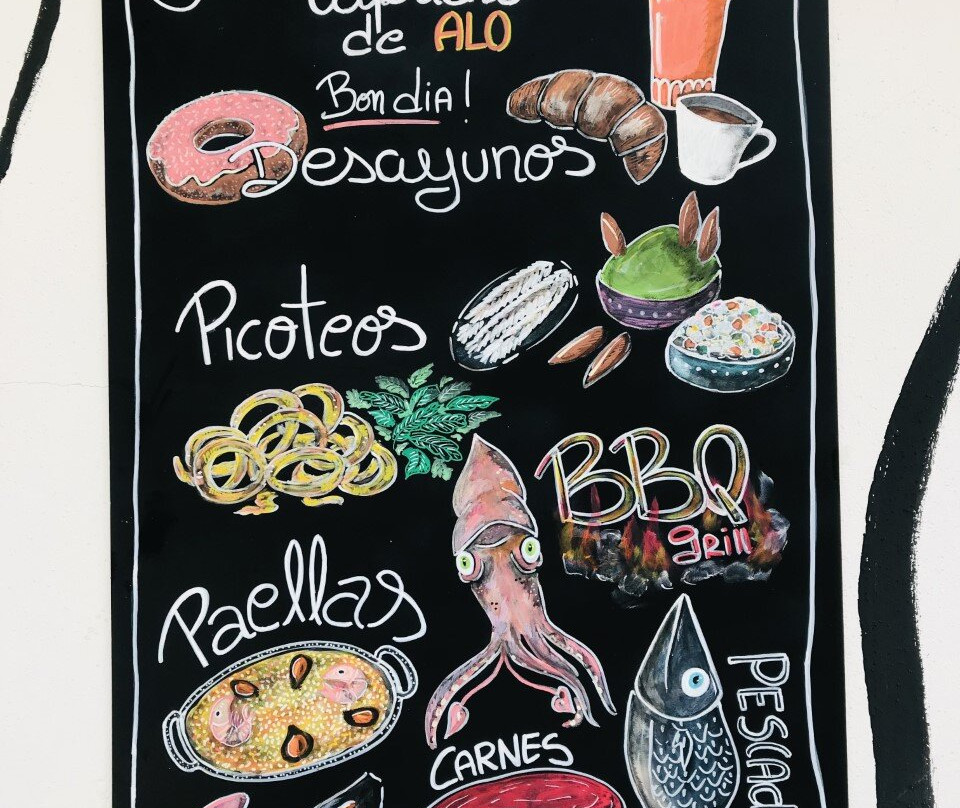 de ALO
Bon dia!
Desayunos
Picoteos
BBQ
grill
Paellas
CARNES